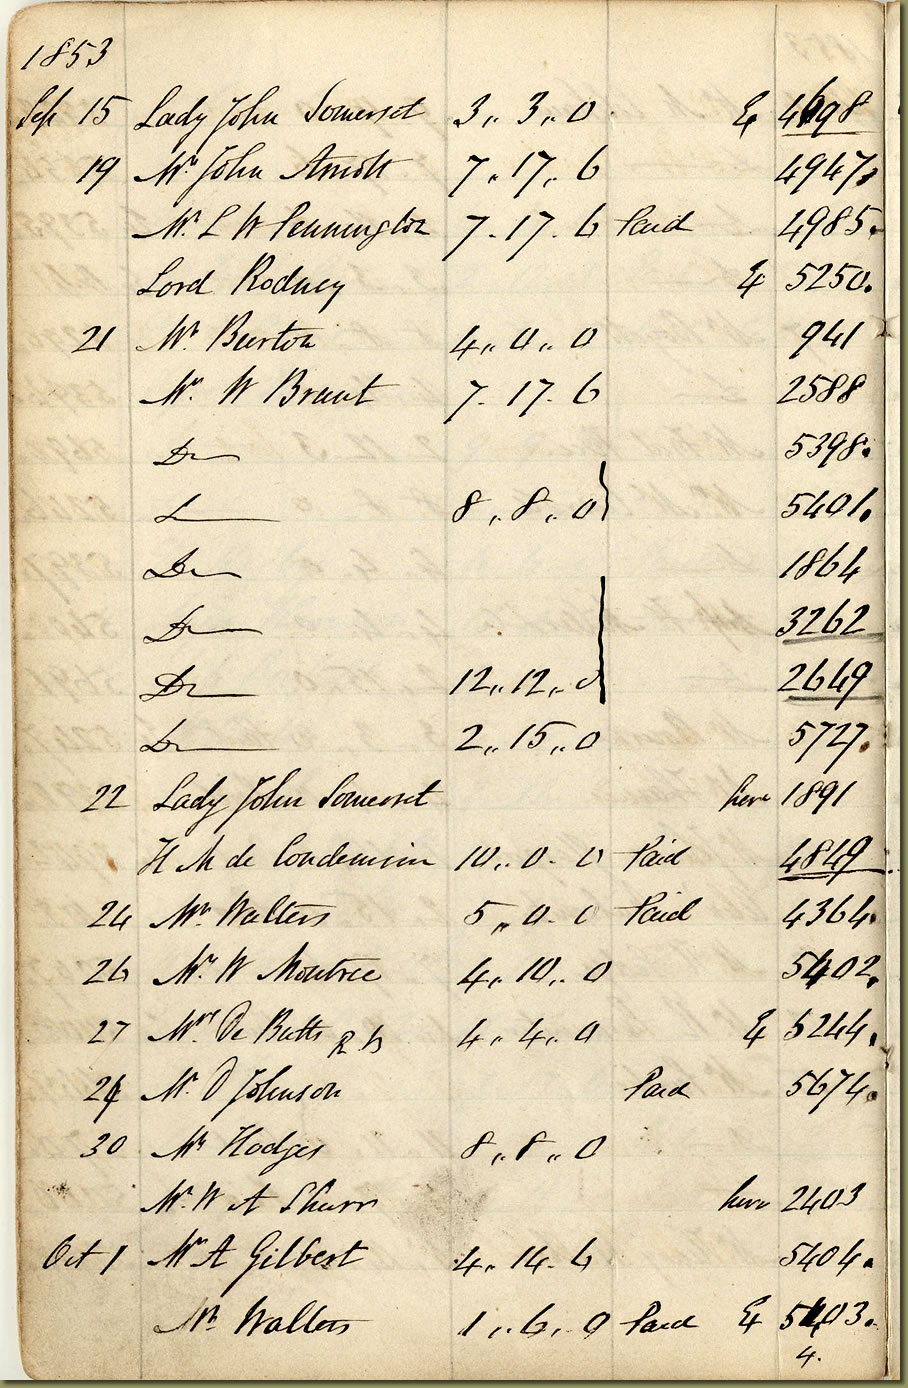 1853
Sep 15 Lady John Somerset 3 ,, 3 ,, 0 E 4698
19 Mr John Arnott 7 ,, 17 ,, 6 4947.
Mr L W Pennington 7 - 17 - 6 Paid 4985.
Lord Rodney E 5250.
21 Mr Burton 4 ,, 0 ,, 0 941
Mr W Braut 7 - 17 - 6 2588
Do 5398.
Do 8 ,, 8 ,, 0 5401.
Do 1864
Do 3262
Do 12 ,, 12 ,, 0 2649
Do 2 ,, 15 ,, 0 5727.
22 Lady John Somerset here 1891
H M de 10 ,, 0 - 0 Paid 4849
24 Mr Walters 5 ,, 0 - 0 Paid 4364.
26 Mr W Montree 4 ,, 10 ,, 0 5402.
27 Mrs De Butts 4 ,, 4 ,, 0 E 5244.
Mr D Johnson Paid 5674.
30 Mr Hodges 8 ,, 8 ,, 0
Mr W A here 2403
Oct 1 Mr A Gilbert 4 ,, 14 - 6 5404.
Mr Walters 1 ,, 6 ,, 0 Paid E 5403.
4.